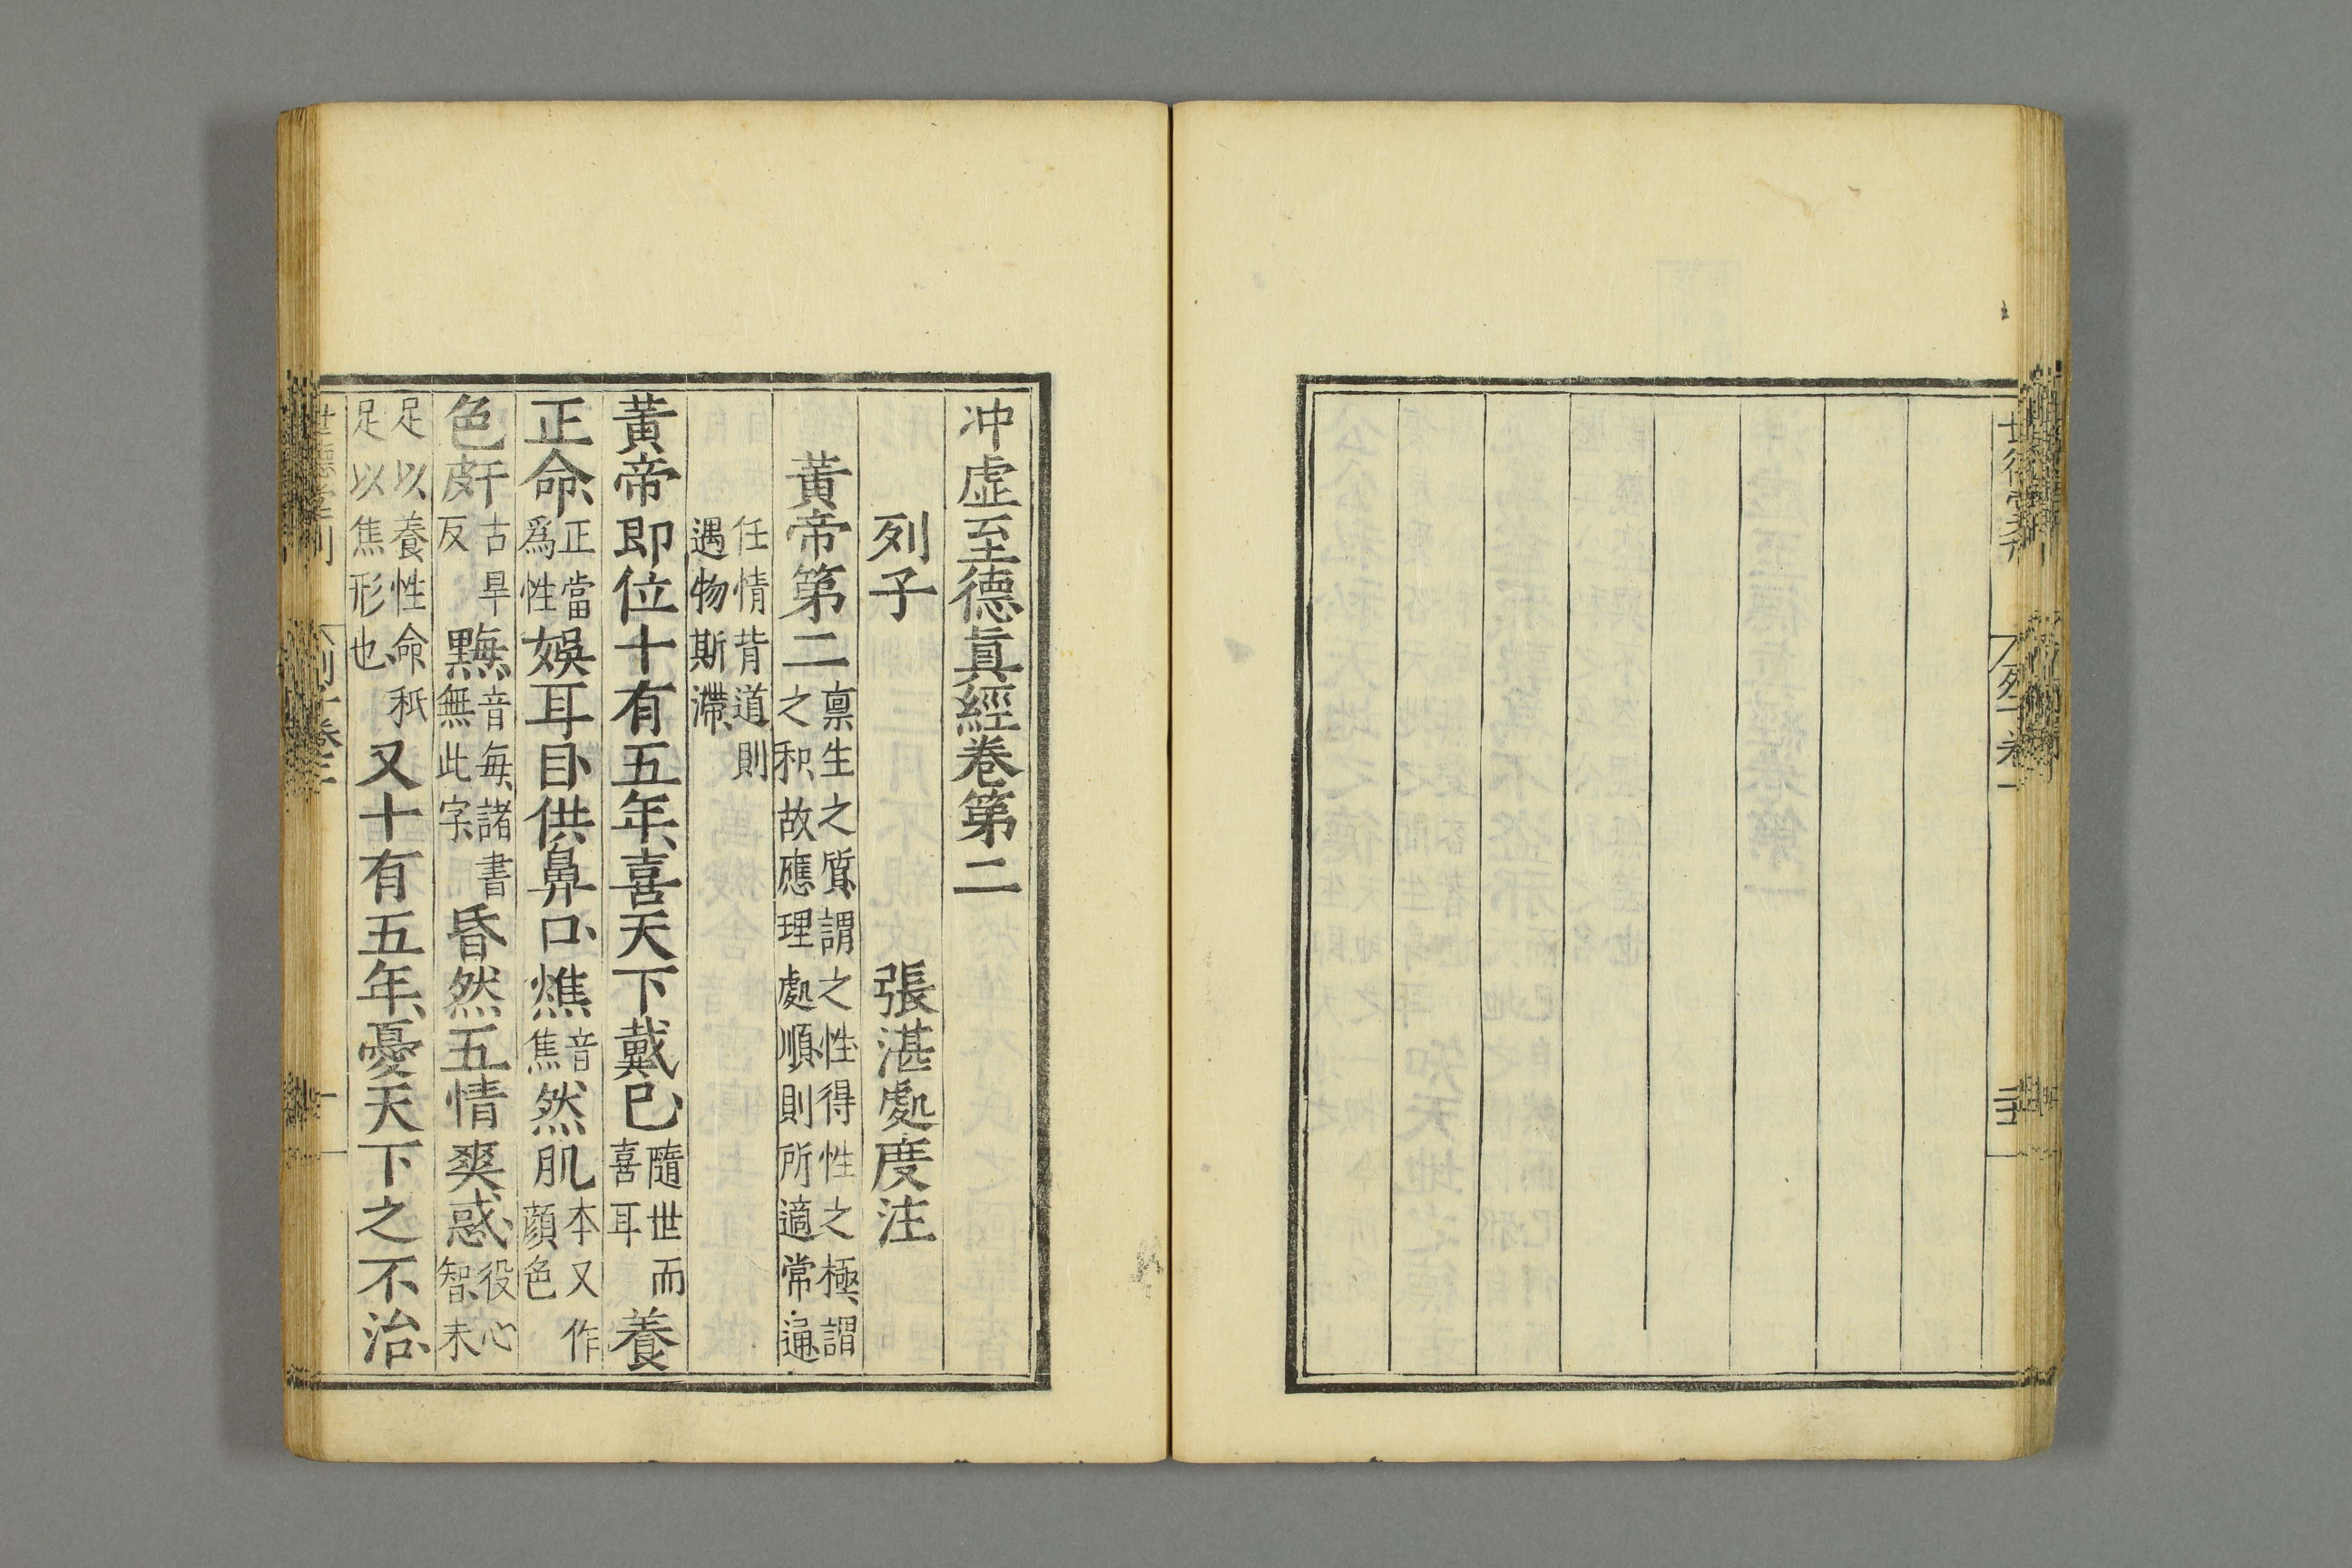 冲虛至德眞經卷第二
列子　張湛處度注
黃帝第二稟生之質謂之性得性之極謂之和故應理處順則所適常通
任情背道則遇物斯滯
黃帝即位十有五年喜天下戴已隨世而喜耳養
正命正當爲性娛耳目供鼻口燋音焦然肌本又作顔色
色皯古旱反黣音每諸書無此字昏然五情爽惑役心智未
足以養性命秖足以焦形也又十有五年憂天下之不治
世德堂刊
列子卷二
一